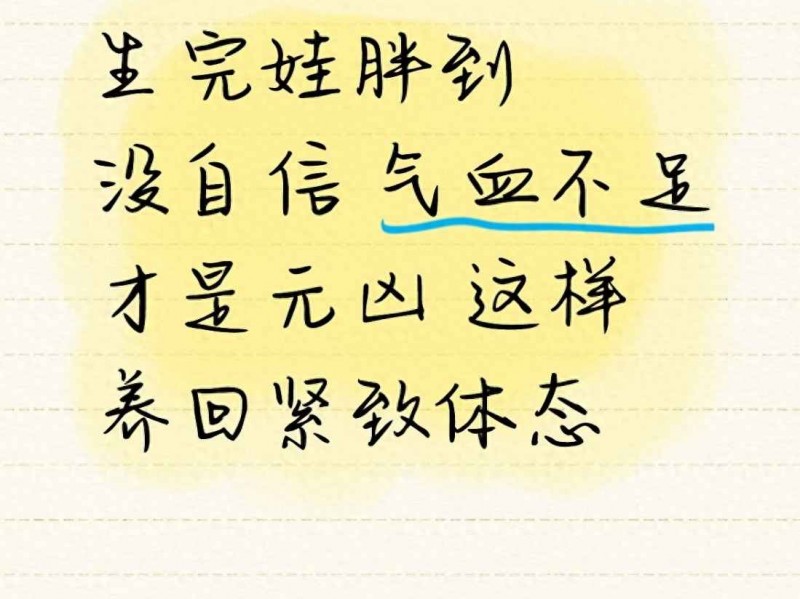 生完娃胖到
没自信 气血不足
才是元凶 这样
养回紧致体态